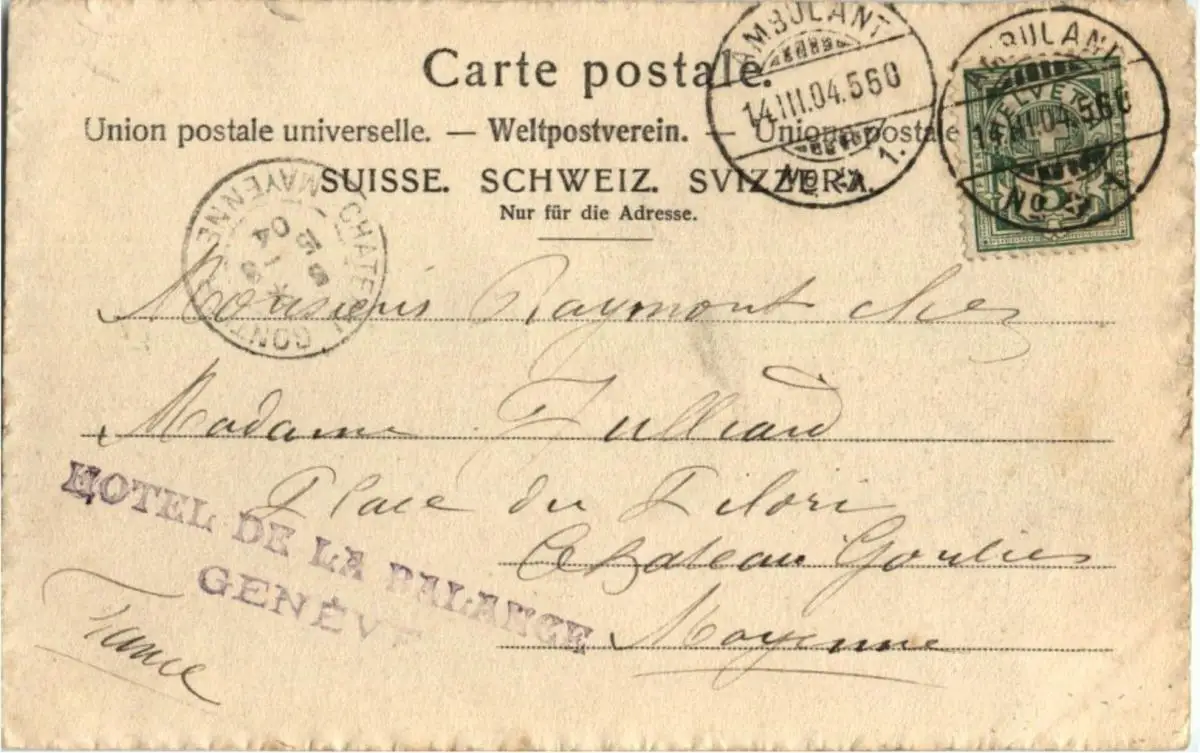 Carte postale.
Union postale universelle. — Weltpostverein. — Unione postale
SUISSE. SCHWEIZ. SVIZZERA.
Nur für die Adresse.
AMBULANT
14.III.04.560
No 1.
AMBULANT
HELVETIA
14.III.04.560
No 1.
CHATEAU GONTIER
MAYENNE
04
Monsieur Raymont chez
Madame Julliard
Place du Pilori
Chateau Gontier
Mayenne
France
HOTEL DE LA BALANCE
GENÈVE